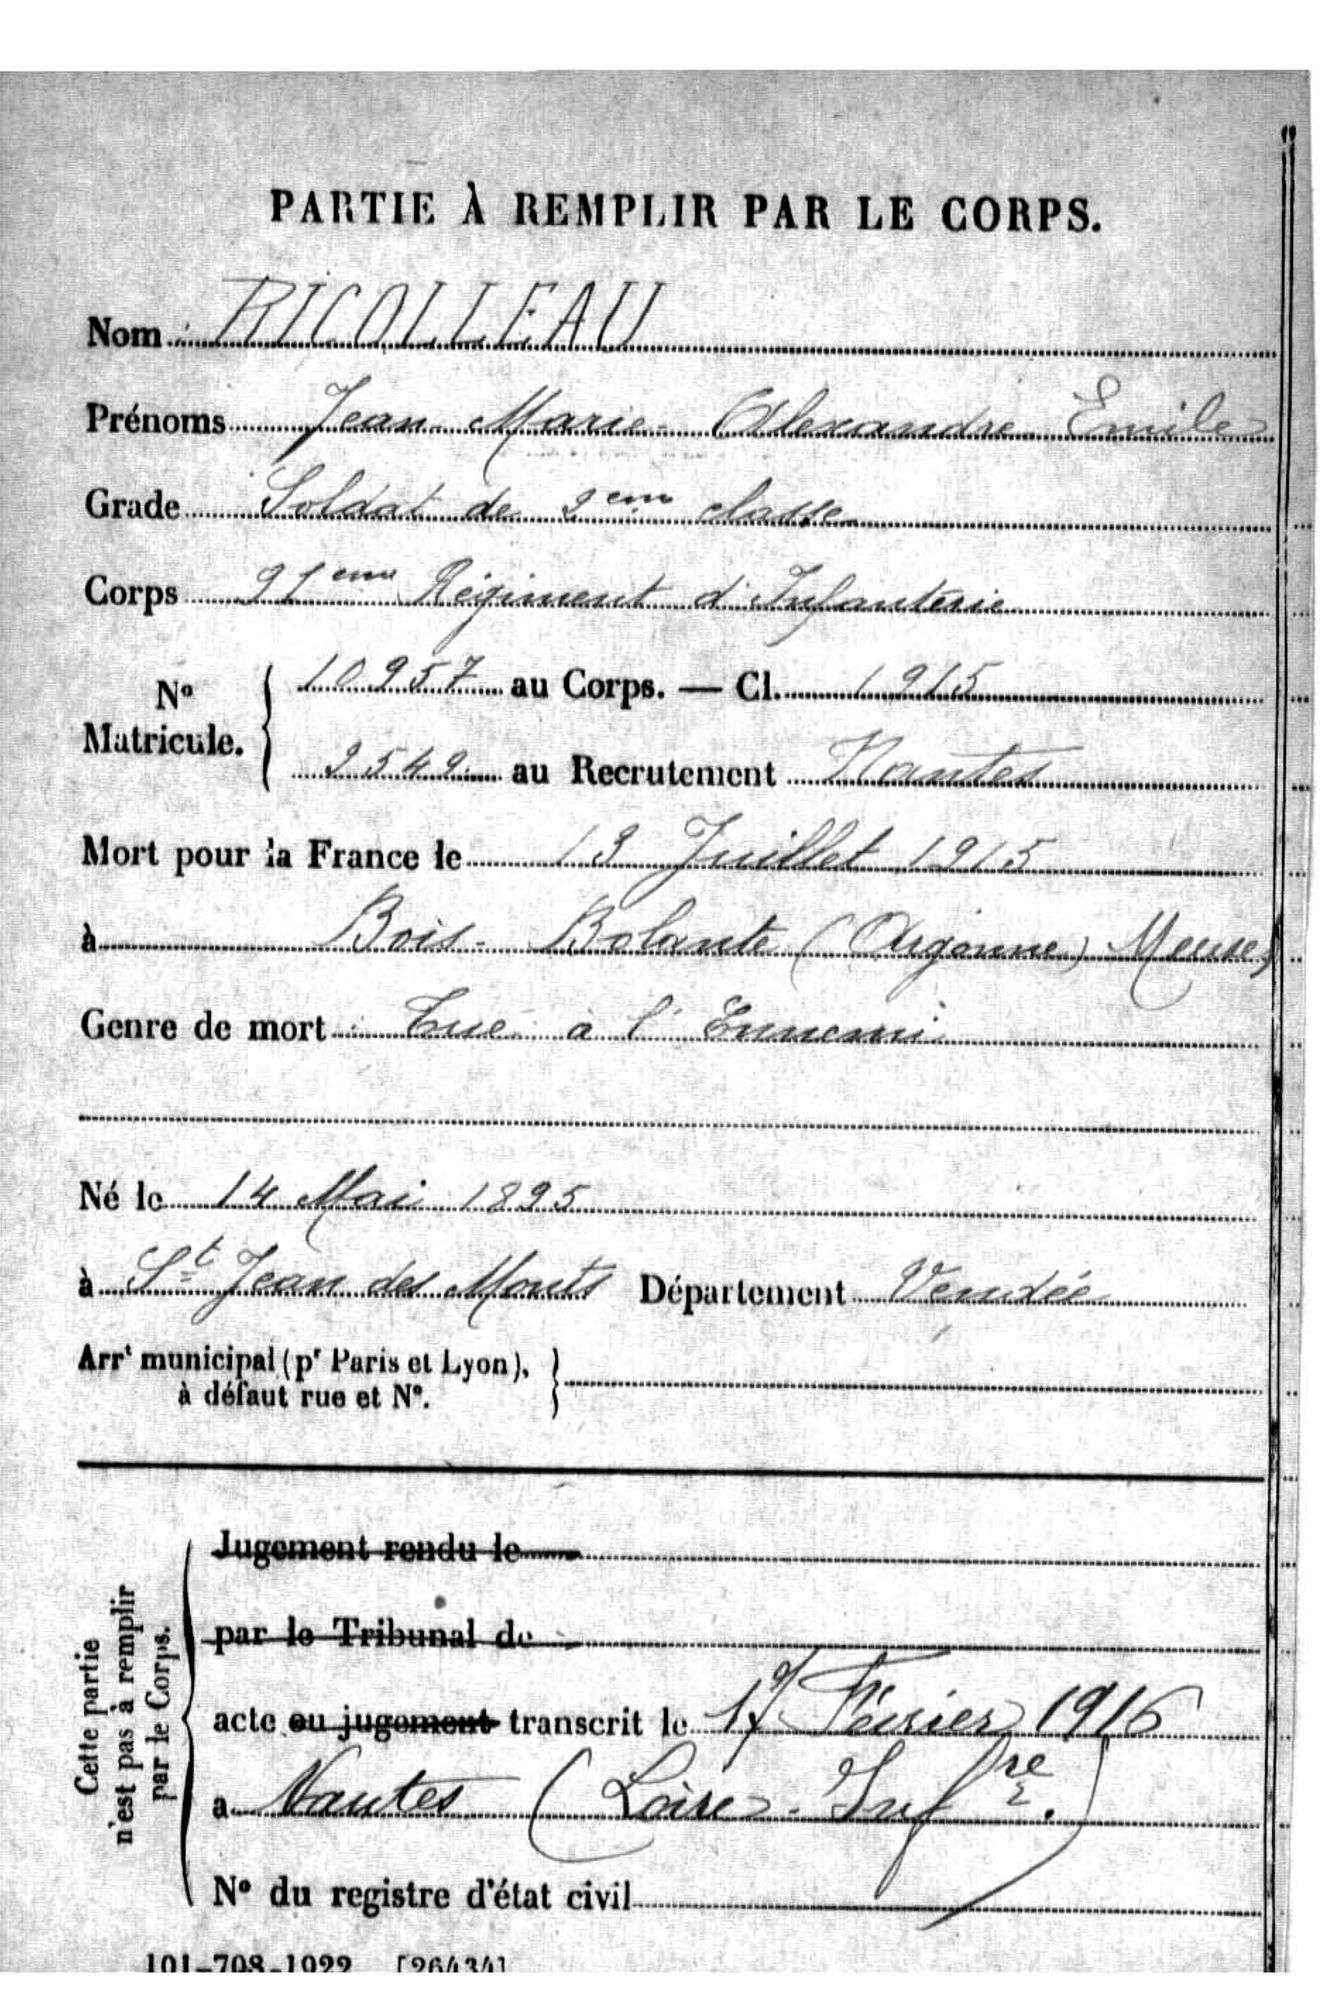 PARTIE À REMPLIR PAR LE CORPS.
Nom : RICOLLEAU
Prénoms Jean Marie Alexandre Emile
Grade Soldat de 2eme classe
Corps 91eme Régiment d'Infanterie
No Matricule. { 10957 au Corps. — Cl. 1915
2542 au Recrutement Nantes
Mort pour la France le 13 Juillet 1915
à Bois-Bolante (Argonne) Meuse)
Genre de mort Tué à l'Ennemi
Né le 14 Mai 1895
à St Jean des Monts Département Vendée
Arrt municipal (pr Paris et Lyon), à défaut rue et No.
Cette partie n'est pas à remplir par le Corps.
Jugement rendu le
par le Tribunal de
acte ou jugement transcrit le 17 Février 1916
a Nantes (Loire-Infre.)
No du registre d'état civil
101-708-1922. [26434]